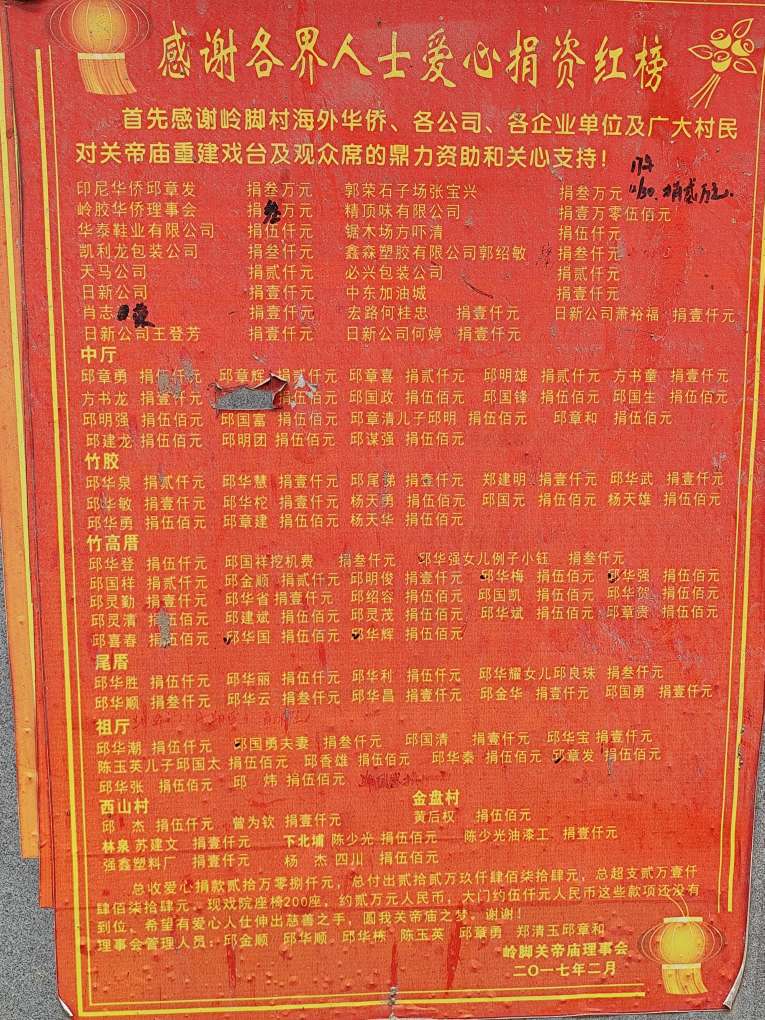 感谢各界人士爱心捐资红榜
首先感谢岭脚村海外华侨、各公司、各企业单位及广大村民
对关帝庙重建戏台及观众席的鼎力资助和关心支持！
印尼华侨邱章发 捐叁万元 郭荣石子场张宝兴 捐叁万元
岭胶华侨理事会 捐叁万元 精顶味有限公司 捐壹万零伍佰元
华泰鞋业有限公司 捐伍仟元 锯木场方吓清 捐伍仟元
凯利龙包装公司 捐叁仟元 鑫森塑胶有限公司郭绍敏 捐叁仟元
天马公司 捐贰仟元 必兴包装公司 捐贰仟元
日新公司 捐壹仟元 中东加油城 捐壹仟元
肖志 捐壹仟元 宏路何桂忠 捐壹仟元 日新公司萧裕福 捐壹仟元
日新公司王登芳 捐壹仟元 日新公司何婷 捐壹仟元
中厅
邱章勇 捐伍仟元 邱章辉 捐贰仟元 邱章喜 捐贰仟元 邱明雄 捐贰仟元 方书童 捐壹仟元
方书龙 捐壹仟元 伍佰元 邱国政 捐伍佰元 邱国锋 捐伍佰元 邱国生 捐伍佰元
邱明强 捐伍佰元 邱国富 捐伍佰元 邱章清儿子邱明 捐伍佰元 邱章和 捐伍佰元
邱建龙 捐伍佰元 邱明团 捐伍佰元 邱谋强 捐伍佰元
竹胶
邱华泉 捐贰仟元 邱华慧 捐壹仟元 邱尾弟 捐壹仟元 郑建明 捐壹仟元 邱华武 捐壹仟元
邱华敏 捐壹仟元 邱华柁 捐壹仟元 杨天勇 捐伍佰元 邱国元 捐伍佰元 杨天雄 捐伍佰元
邱华勇 捐伍佰元 邱章建 捐伍佰元 杨天华 捐伍佰元
竹高厝
邱华登 捐伍仟元 邱国祥挖机费 捐叁仟元 邱华强女儿例子小钰 捐叁仟元
邱国样 捐贰仟元 邱金顺 捐贰仟元 邱明俊 捐壹仟元 邱华梅 捐伍佰元 邱华强 捐伍佰元
邱灵勤 捐壹仟元 邱华省 捐壹仟元 邱绍容 捐伍佰元 邱国凯 捐伍佰元 邱华贺 捐伍佰元
邱灵清 捐伍佰元 邱建斌 捐伍佰元 邱灵茂 捐伍佰元 邱华斌 捐伍佰元 邱章贵 捐伍佰元
邱喜春 捐伍佰元 邱华国 捐伍佰元 邱华辉 捐伍佰元
尾厝
邱华胜 捐伍仟元 邱华丽 捐伍仟元 邱华利 捐伍仟元 邱华耀女儿邱良珠 捐叁仟元
邱华顺 捐叁仟元 邱华云 捐叁仟元 邱华昌 捐壹仟元 邱金华 捐壹仟元 邱国勇 捐壹仟元
祖厅
邱华潮 捐伍仟元 邱国勇夫妻 捐叁仟元 邱国清 捐壹仟元 邱华宝 捐壹仟元
陈玉英儿子邱国太 捐伍佰元 邱香雄 捐伍佰元 邱华秦 捐伍佰元 邱章发 捐伍佰元
邱华张 捐伍佰元 邱 炜 捐伍佰元
西山村 金盘村
邱 杰 捐伍仟元 曾为钦 捐壹仟元 黄后权 捐伍佰元
林泉 苏建文 捐壹仟元 下北埔 陈少光 捐伍佰元 陈少光油漆工 捐壹仟元
强鑫塑料厂 捐壹仟元 杨 杰 四川 捐伍佰元
总收爱心捐款贰拾万零捌仟元，总付出贰拾贰万玖仟肆佰柒拾肆元，总超支贰万壹仟
肆佰柒拾肆元，现戏院座椅200座，约贰万元人民币，大门约伍仟元人民币这些款项还没有
到位，希望有爱心人仕伸出慈善之手，圆我关帝庙之梦，谢谢！
理事会管理人员：邱金顺 邱华顺 邱华栋 陈玉英 邱章勇 郑清玉邱章和
岭脚关帝庙理事会
二〇一七年二月